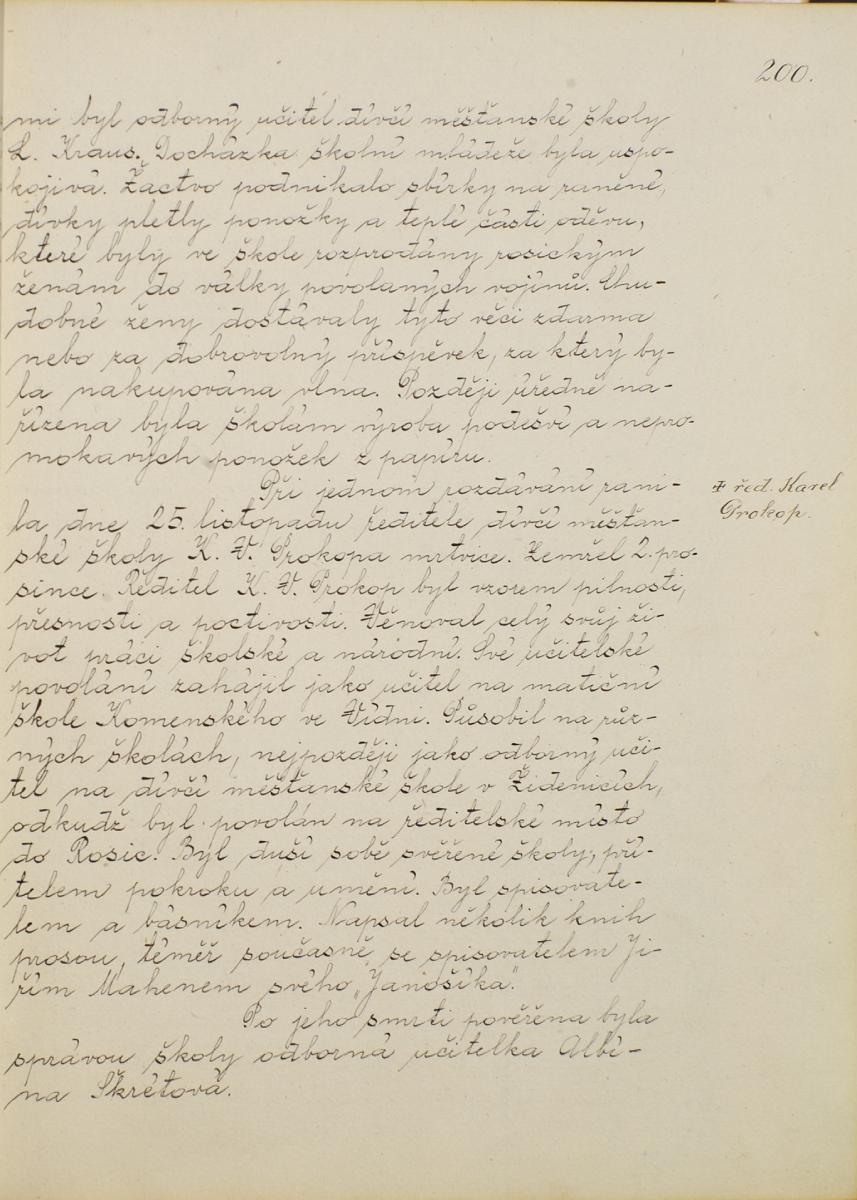 200.
mi byl odborný učitel dívčí měšťanské školy
L. Kraus. Docházka školní mládeže byla uspo-
kojivá. Žactvo podnikalo sbírky na raněné,
dívky pletly ponožky a teplé části oděvu,
které byly ve škole rozprodány rosickým
ženám do války povolaných vojínů. Chu-
dobné ženy dostávaly tyto věci zdarma
nebo za dobrovolný příspěvek, za který by-
la nakupována vlna. Později úředně na-
řízena byla školám výroba podešví a nepro-
mokavých ponožek z papíru.
Při jednom rozdávání rani-
la dne 25. listopadu ředitele dívčí měšťan-
ské školy K. V. Prokopa mrtvice. Zemřel 2. pro-
since. Ředitel K. V. Prokop byl vzorem pilnosti,
přesnosti a poctivosti. Věnoval celý svůj ži-
vot práci školské a národní. Své učitelské
povolání zahájil jako učitel na matiční
škole Komenského ve Vídni. Působil na růz-
ných školách, nejpozději jako odborný uči-
tel na dívčí měšťanské škole v Židenicích,
odkudž byl povolán na ředitelské místo
do Rosic. Byl duší sobě svěřené školy, pří-
telem pokroku a umění. Byl spisovate-
lem a básníkem. Napsal několik knih
prosou, téměř současně se spisovatelem Ji-
řím Mahenem svého „Janošíka".
Po jeho smrti pověřena byla
správou školy odborná učitelka Albí-
na Škrétová.
✠ řed. Karel
Prokop.